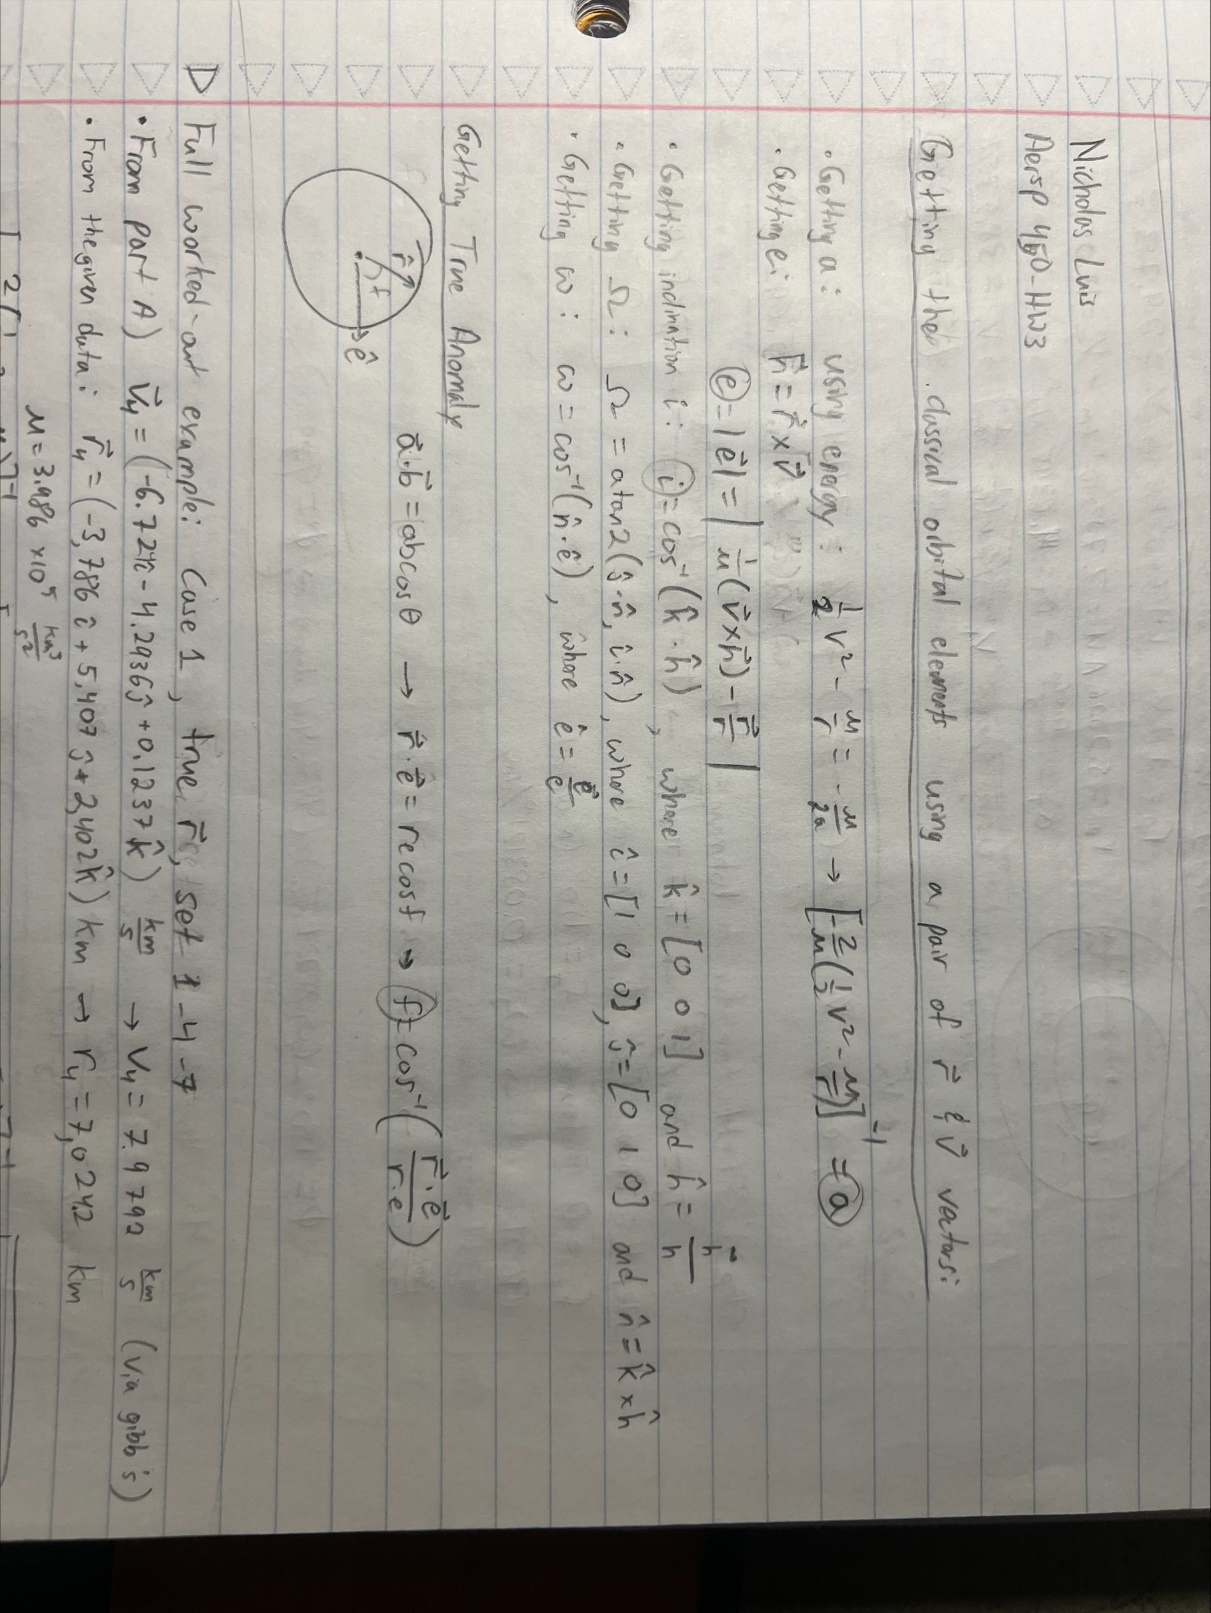 Nicholas Luis
Aersp 450-HW3
Getting the classical orbital elements using a pair of r⃗ & v⃗ vectors:
• Getting a: using energy: ½v² - μ/r = -μ/2a → [-2/μ(½v² - μ/r)]⁻¹ = a
• Getting e: h⃗ = r⃗ × v⃗
e = |e⃗| = | 1/μ (v⃗×h⃗) - r⃗/r |
• Getting inclination i: i = cos⁻¹(k̂·ĥ), where k̂ = [0 0 1] and ĥ = h⃗/h
• Getting Ω: Ω = atan2(ĵ·n̂, î·n̂), where î = [1 0 0], ĵ = [0 1 0] and n̂ = k̂ × ĥ
• Getting ω: ω = cos⁻¹(n̂·ê), where ê = e⃗/e
Getting True Anomaly
a⃗·b⃗ = abcosθ → r⃗·e⃗ = recosf → f = cos⁻¹(r⃗·e⃗ / r·e)
r̂
f
ê
Full worked-out example: Case 1, true r⃗, set 1-4-7
• From part A) v⃗₄ = (-6.724î - 4.2936ĵ + 0.1237k̂) km/s → v₄ = 7.9792 km/s (via gibb's)
• From the given data: r⃗₄ = (-3,786î + 5,407ĵ + 2,402k̂) km → r₄ = 7,024.2 km
μ = 3.986 ×10⁵ km³/s²